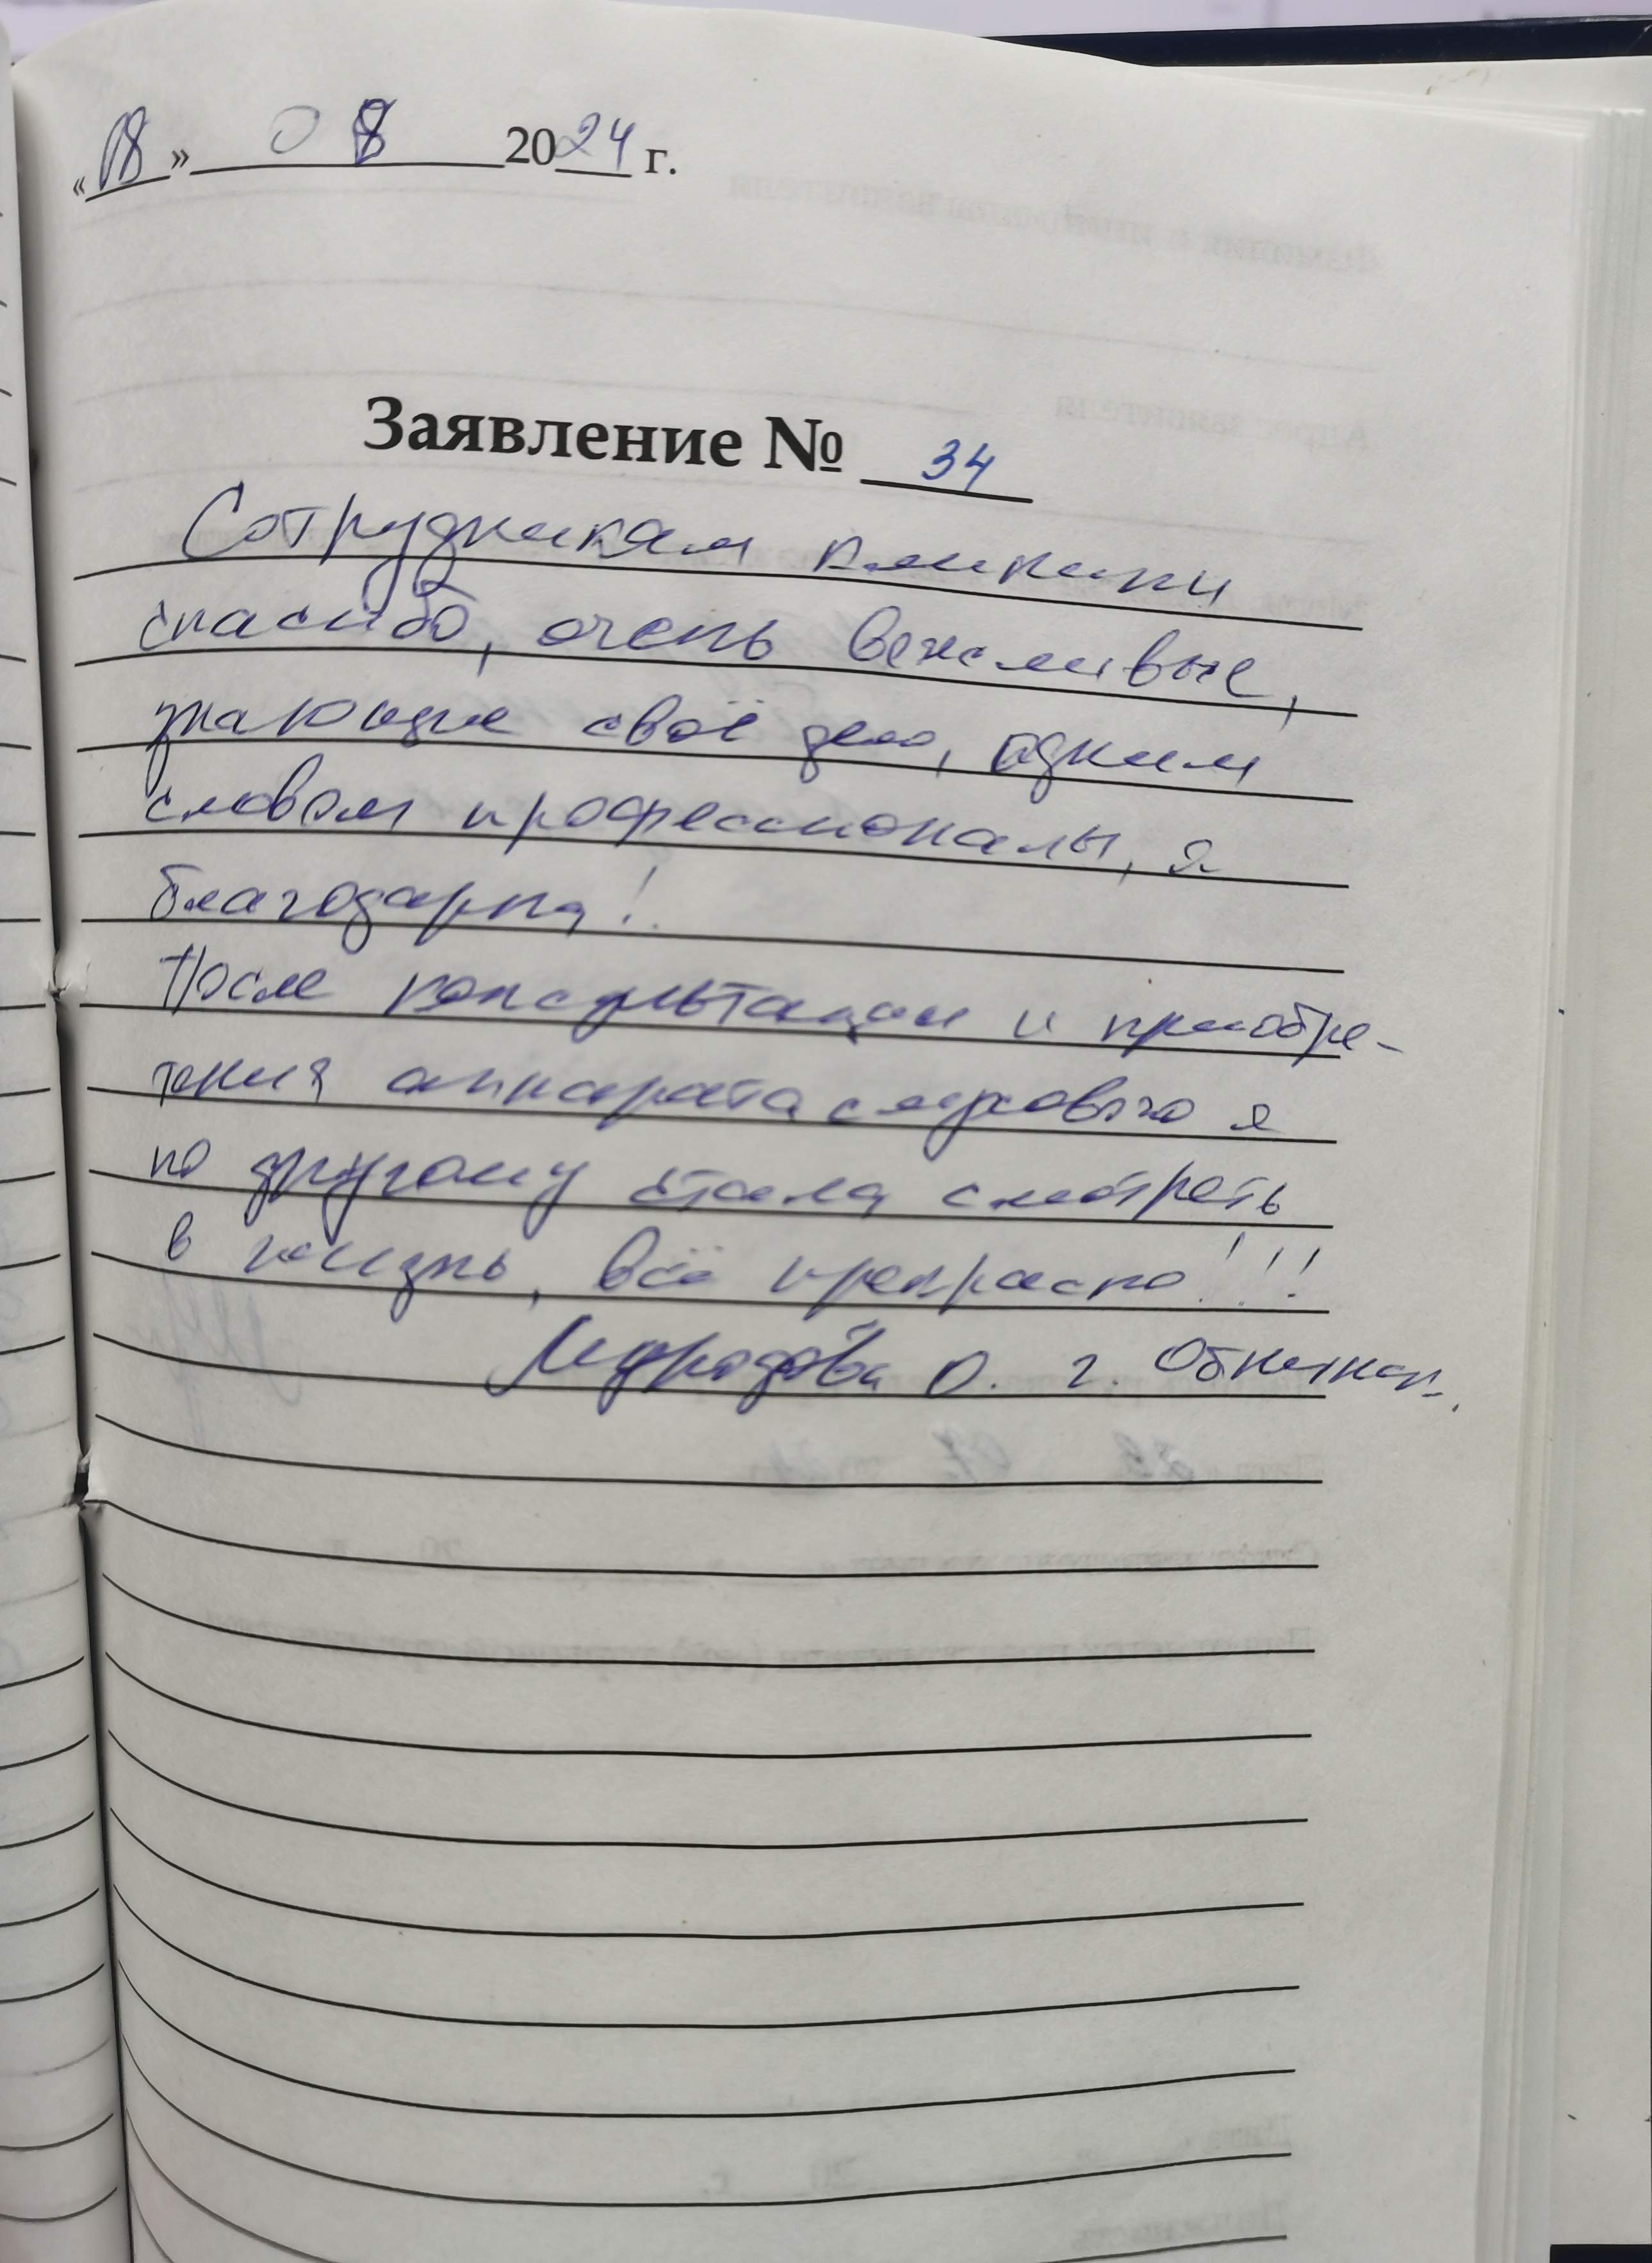 «18» 08 2024 г.
Заявление № 34
Сотрудникам клиники
спасибо, очень вежливые,
знающие своё дело, одним
словом профессионалы, я
благодарна!
После консультации и приобре-
тения аппарата слухового я
по другому стала смотреть
в жизнь, всё прекрасно!!!
О. г. Обнинск.